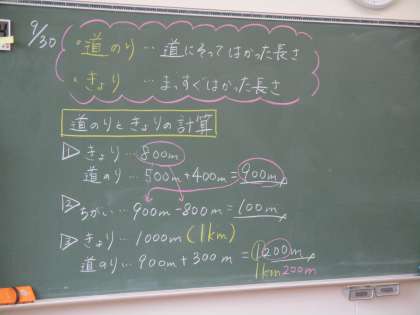 9/30
・道のり…道にそってはかった長さ
・きょり…まっすぐはかった長さ
道のりときょりの計算
1 きょり…800m
道のり…500m+400m=900m
2 ちがい…900m-800m=100m
3 きょり…1000m(1km)
道のり…900m+300m=1200m
1km200m